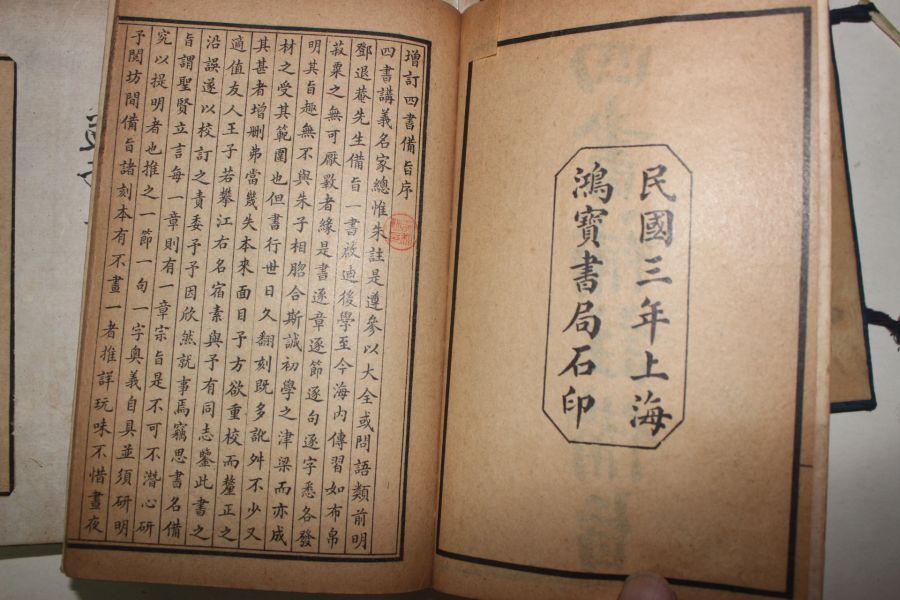 民國三年上海
鴻寶書局石印
增訂四書備旨序
四書講義名家總惟朱註是遵參以大全或問語類前明
鄧退菴先生備旨一書啟迪後學至今海內傳習如布帛
菽粟之無可厭斁者緣是書逐章逐節逐句逐字悉各發
明其旨趣無不與朱子相脗合斯誠初學之津梁而亦成
材之受其範圍也但書行世日久翻刻既多訛舛不少又
其甚者增刪弗當幾失本來面目予方欲重校而釐正之
適值友人王子若攀江右名宿素與予有同志鑒此書之
沿誤遂以校訂之責委予予因欣然就事焉竊思書名備
旨謂聖賢立言每一章則有一章宗旨是不可不潛心研
究以提明者也推之一節一句一字奧義自具並須研明
予閱坊間備旨諸刻本有不畫一者推詳玩味不惜晝夜